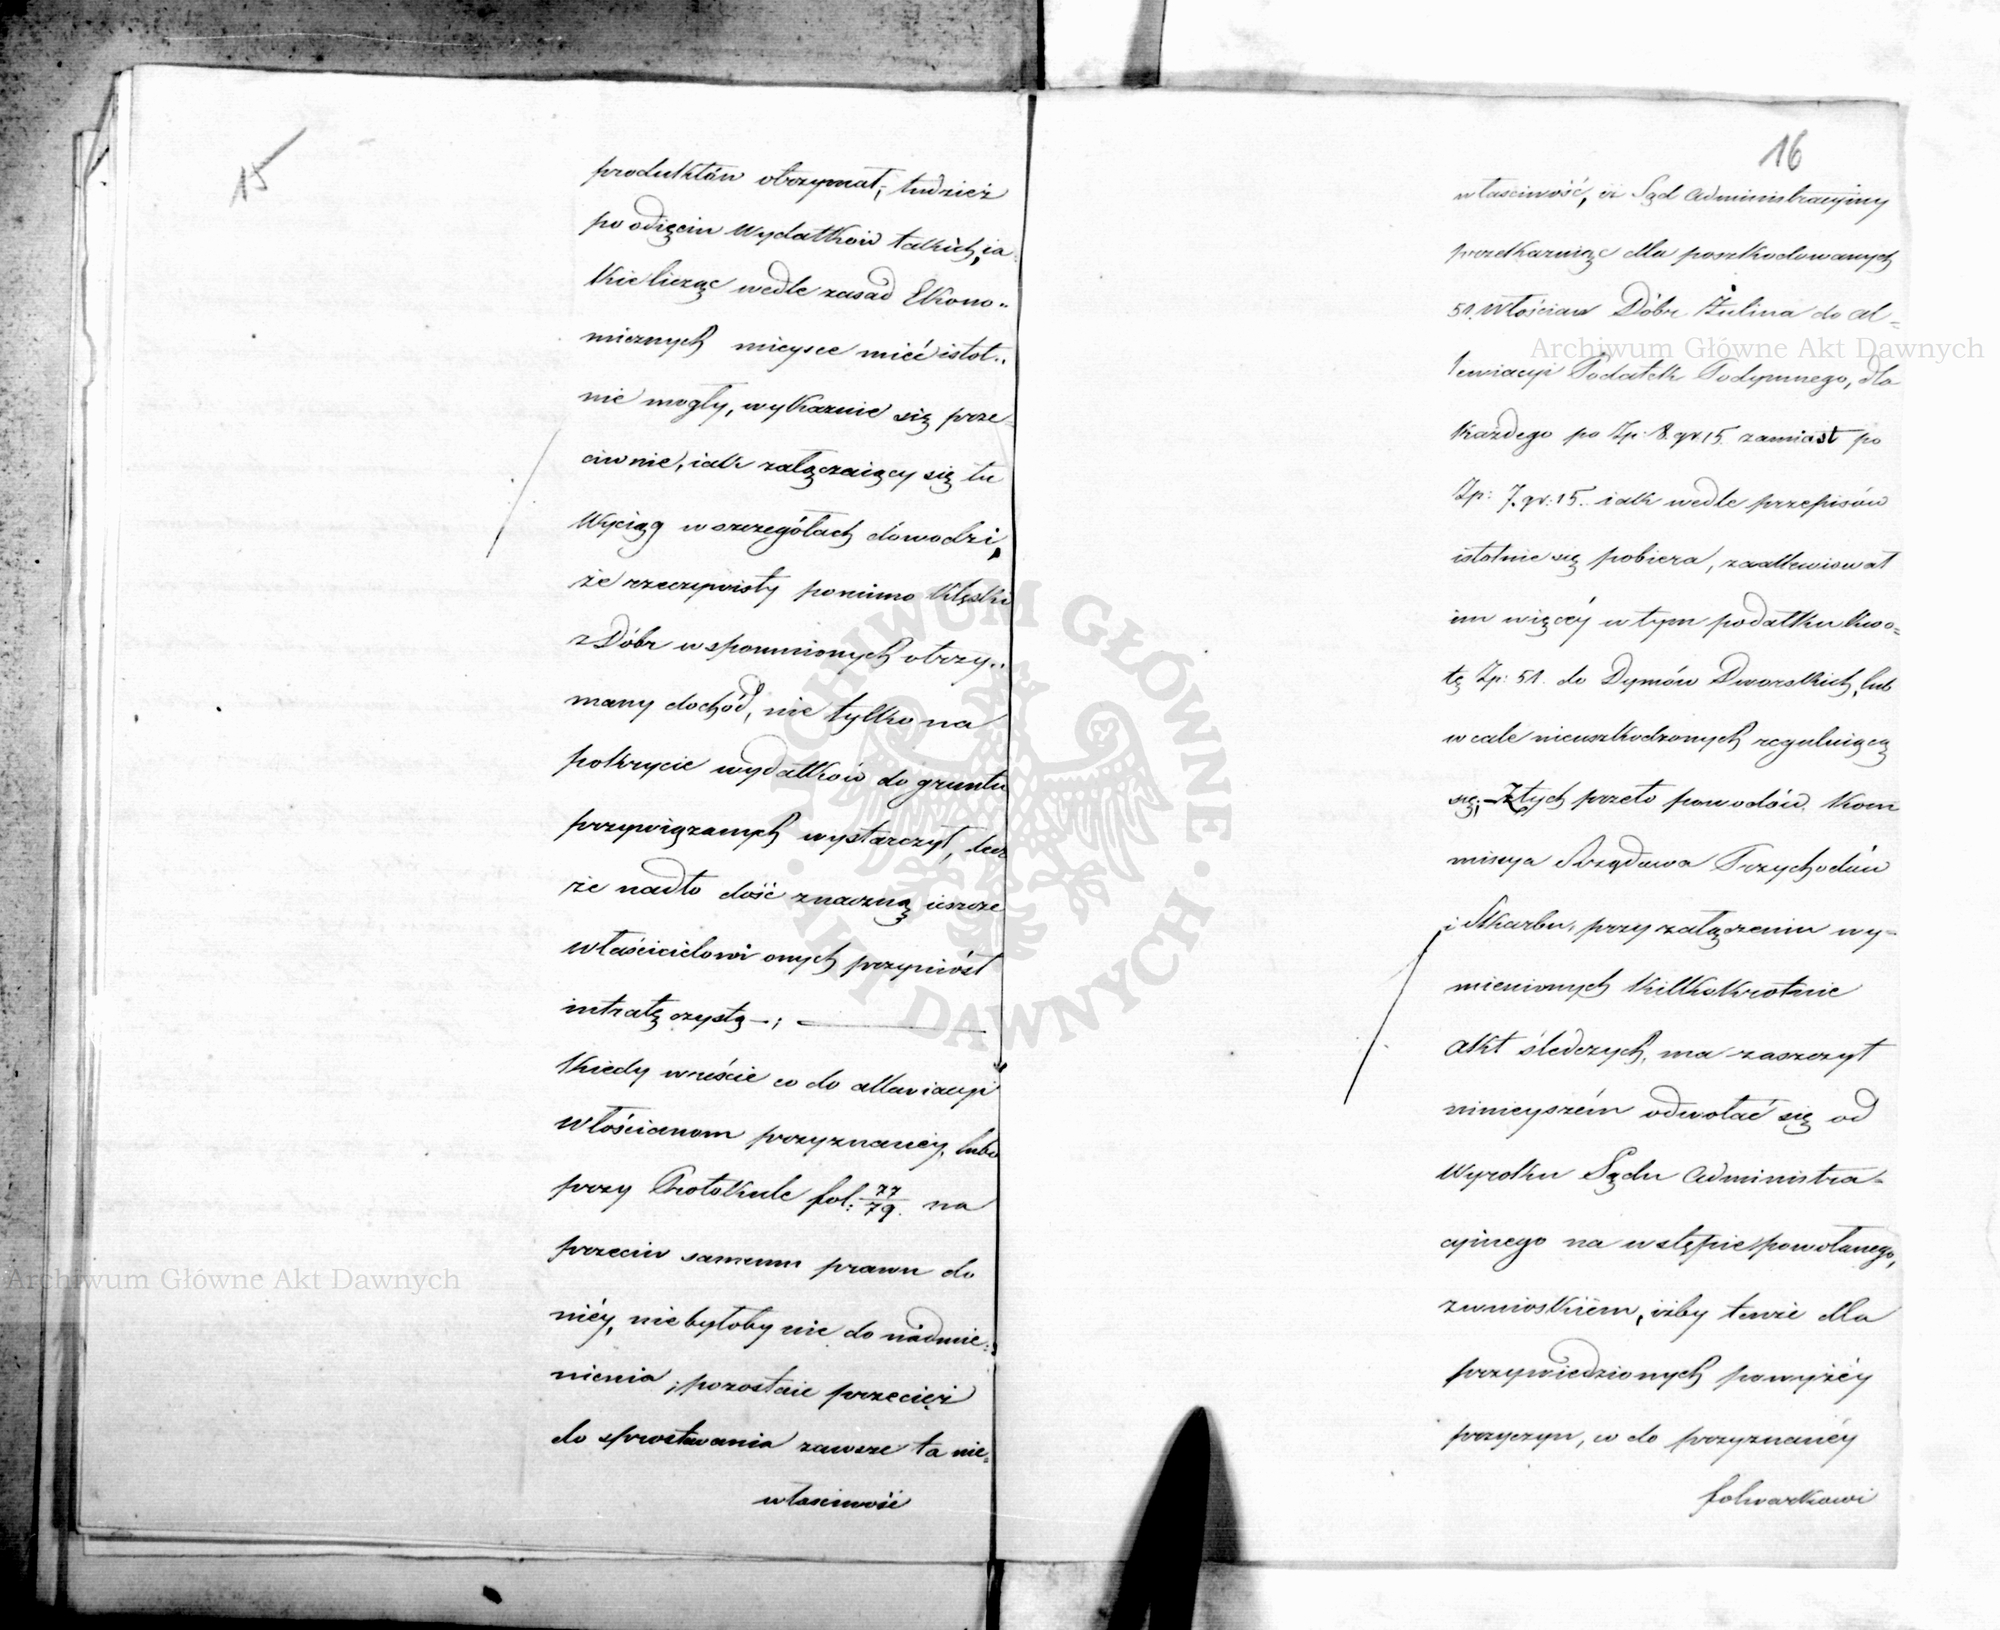 15
produktów otrzymał, tudzież
po odięciu wydatków takich, ia-
kie licząc wedle zasad Ekono-
micznych mieysce mieć istot-
nie mogły, wykaznie się prze-
ciwnie, iak załączaiący się tu
Wyciąg w szczegółach dowodzi,
że rzeczywisty pomimo klęski
z Dóbr wspomnionych otrzy-
many dochód, nie tylko na
pokrycie wydatków do gruntu
przywiązanych wystarczył, lecz
że nadto dość znaczną ieszcze
właścicielowi onych przyniósł
intratę czystą —; —
Kiedy wreście co do allewiacyi
Włościanom przyznaney, lubo
przy Protokule fol: 77/79. na
przeciw samemu prawu do
niéy, nie byłoby nic do nadmie-
nienia, pozostaie przecież
do sprostowania zawsze ta nie-
właściwość
16
właściwość, iż Sąd Administracyiny
przekazuiąc dla poszkodowanych
51. Włościan Dóbr Żulina do al-
lewiacyi Podatek Podymnego, dla
każdego po Zp: 8. gr. 15. zamiast po
Zp: 7. gr: 15. iak wedle przepisów
istotnie się pobiera, zaallewiował
im więcéy w tym podatku kwo-
tę Zp: 51. do Dymów Dworskich, lub
wcale nieuszkodzonych reguluiącą
się; — Z tych przeto powodów Kom
missya Rządowa Przychodów
i Skarbu, przy załączeniu wy-
mienionych kilkokrotnie
akt śledczych, ma zaszczyt
ninieyszém odwołać się od
Wyroku Sądu Administra-
cyinego na wstępie powołanego,
z wnioskiem, iżby tenże dla
przywiedzionych powyżéy
przyczyn, co do przyznanéy
folwarkowi
Archiwum Główne Akt Dawnych
Archiwum Główne Akt Dawnych
ARCHIWUM GŁÓWNE AKT DAWNYCH